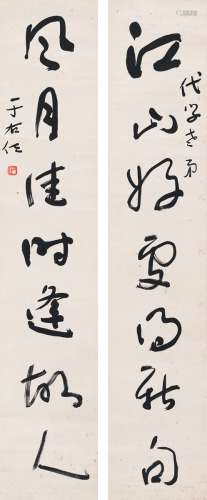 江山好处得新句
代学老弟
风月佳时逢故人
于右任